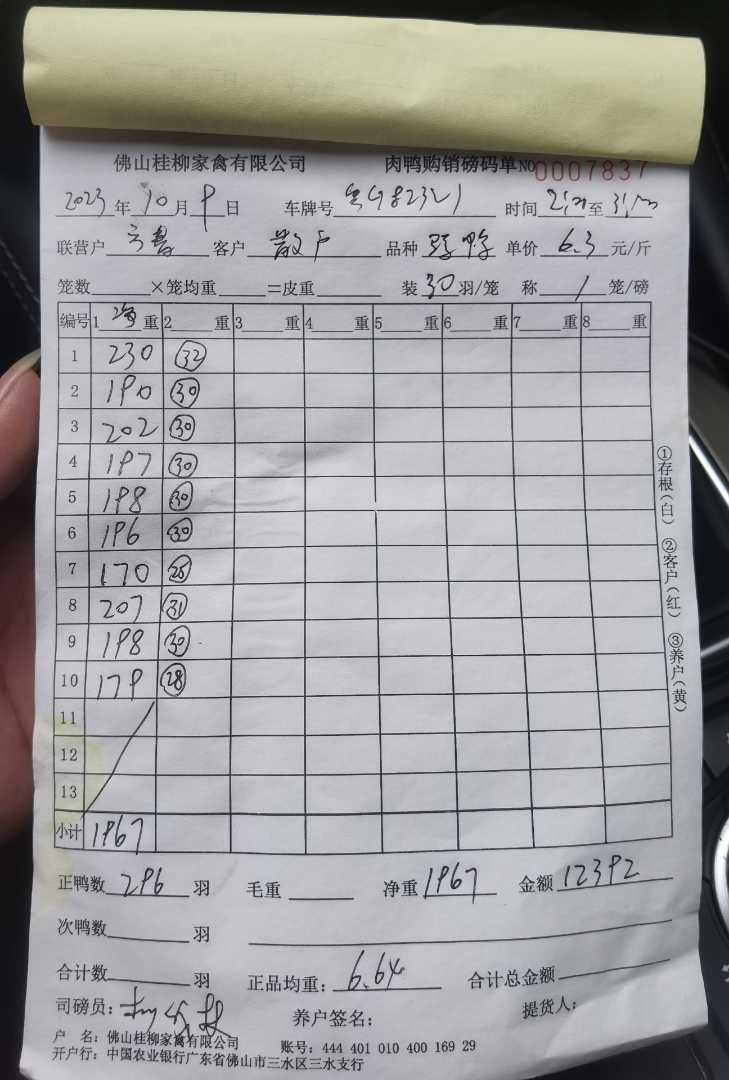 佛山桂柳家禽有限公司 肉鸭购销磅码单 NO 0007837
2023年10月9日 车牌号 时间 至
联营户 客户 散户 品种 单价 6.3 元/斤
笼数 ×笼均重 =皮重 装 30 羽/笼 称 1 笼/磅
编号 1 净 重 2 重 3 重 4 重 5 重 6 重 7 重 8 重
1 230 32
2 190 30
3 202 30
4 197 30
5 198 30
6 196 30
7 170 25
8 207 31
9 198 30
10 179 28
11
12
13
小计 1967
正鸭数 296 羽 毛重 净重 1967 金额 12392
次鸭数 羽
合计数 羽 正品均重: 6.64 合计总金额
司磅员: 养户签名: 提货人:
户 名: 佛山桂柳家禽有限公司 账号: 444 401 010 400 169 29
开户行: 中国农业银行广东省佛山市三水区三水支行
①存根(白) ②客户(红) ③养户(黄)